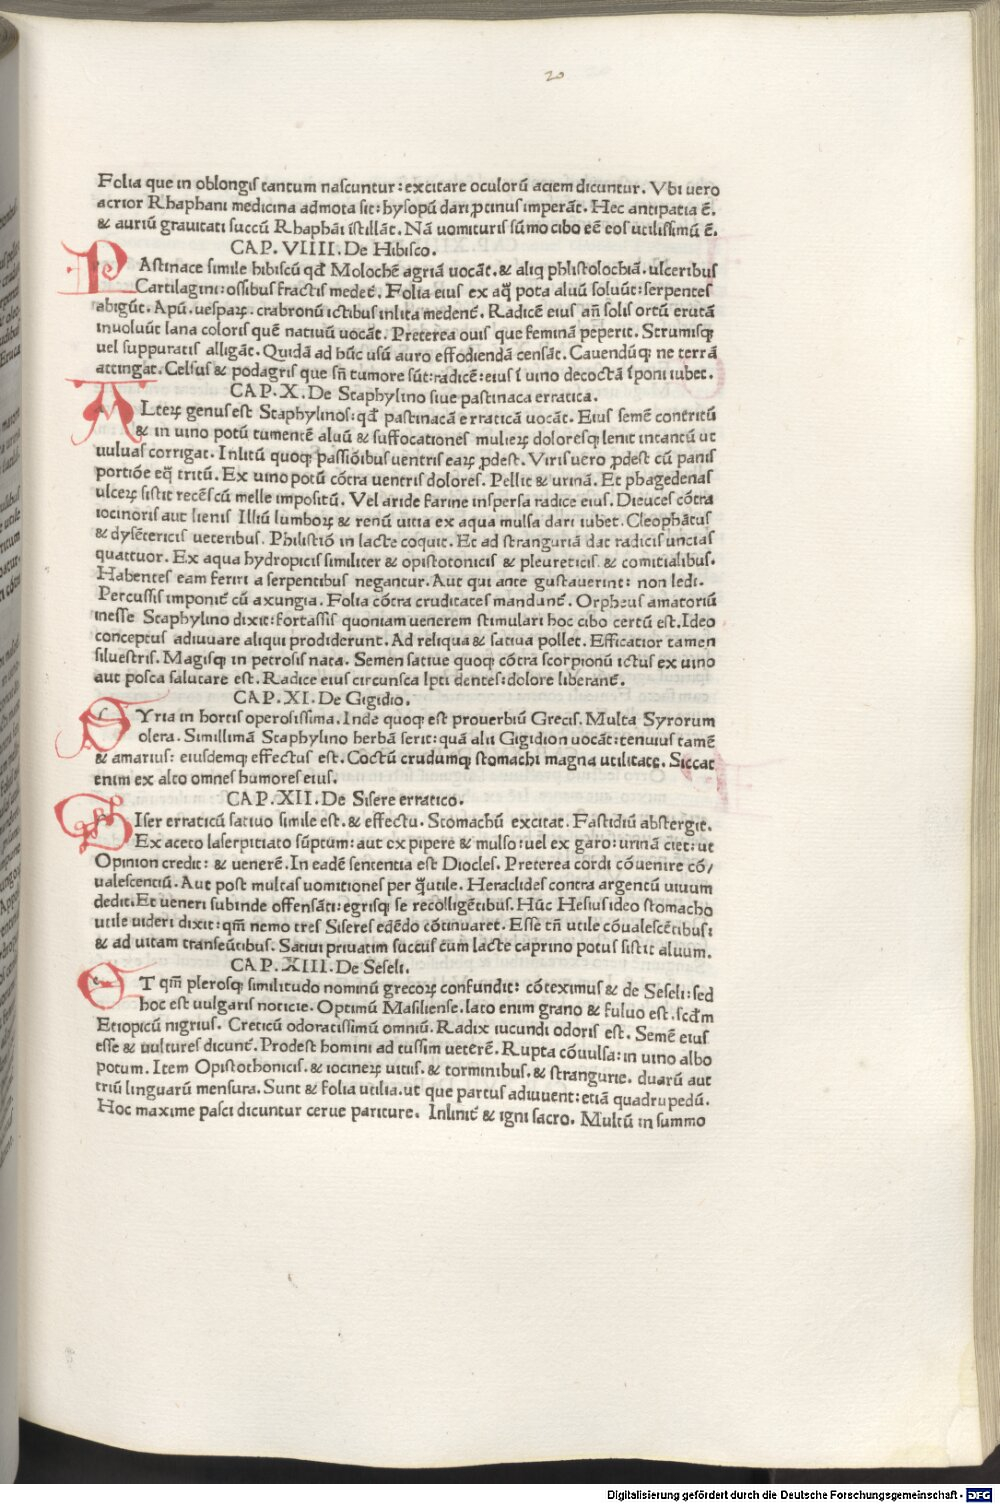 20
Folia que in oblongis tantum nascuntur: excitare oculorū aciem dicuntur. Vbi uero
acrior Rhaphani medicina admota sit: hysopū dari ꝓtinus imperāt. Hec antipatia ē.
& auriū grauitati succū Rhaphāi īstillāt. Nā uomituris sūmo cibo eē eos utilissimū ē.
CAP. VIIII. De Hibisco.
PAstinace simile hibiscū qđ Molochē agriā uocāt. & aliq̄ phlistolochiā. ulceribus
Cartilagini: ossibus fractis medet̄. Folia eius ex aq̄ pota aluū soluūt: serpentes
abigūt. Apū. uespaꝝ. crabronū ictibus inlita medent̄. Radicē eius an̄ solis ortū erutā
inuoluūt lana coloris quē natiuū uocāt. Preterea ouis que feminā peperit. Strumisq;
uel suppuratis alligāt. Quidā ad hūc usū auro effodiendā censāt. Cauendūq; ne terrā
attingat. Celsus & podagris que sn̄ tumore sūt: radicē: eius ī uino decoctā īponi iubet.
CAP. X. De Staphylino siue pastinaca erratica.
ALteꝝ genus est Staphylinos: qđ pastinacā erraticā uocāt. Eius semē contritū
& in uino potū tumentē aluū & suffocationes mulieꝝ doloresq; lenit intantū ut
uuluas corrigat. Inlitū quoq; passiōibus uentris eaꝝ ꝓdest. Viris uero ꝓdest cū panis
portiōe eq̄ tritū. Ex uino potū cōtra uentris dolores. Pellit & urinā. Et phagedenas
ulceꝝ sistit recēs cū melle impositū. Vel aride farine inspersa radice eius. Dieuces cōtra
iocinoris aut lienis Illiū lumboꝝ & renū uitia ex aqua mulsa dari iubet. Cleophātus
& dysētericis ueteribus. Philistiō in lacte coquit. Et ad stranguriā dat radicis uncias
quattuor. Ex aqua hydropicis similiter & opistotonicis & pleureticis. & comitialibus.
Habentes eam feriri a serpentibus negantur. Aut qui ante gustauerint: non ledi.
Percussis imponit̄ cū axungia. Folia cōtra cruditates mandunt̄. Orpheus amatoriū
inesse Staphylino dixit: fortassis quoniam uenerem stimulari hoc cibo certū est. Ideo
conceptus adiuuare aliqui prodiderunt. Ad reliqua & satiua pollet. Efficatior tamen
siluestris. Magisq; in petrosis nata. Semen satiue quoq; cōtra scorpionū ictus ex uino
aut posca salutare est. Radice eius circunsca lpti dentes: dolore liberant̄.
CAP. XI. De Gigidio.
SYria in hortis operosissima. Inde quoq; est prouerbiū Grecis. Multa Syrorum
olera. Simillimā Staphylino herbā serit: quā alii Gigidion uocāt: tenuius tamē
& amarius: eiusdemq; effectus est. Coctū crudumq; stomachi magna utilitate. Siccat
enim ex alto omnes humores eius.
CAP. XII. De Sisere erratico.
SIser erraticū satiuo simile est. & effectu. Stomachū excitat. Fastidiū abstergit.
Ex aceto laserpitiato sūptum: aut ex pipere & mulso: uel ex garo: urinā ciet: ut
Opinion credit: & uenerē. In eadē sententia est Diocles. Preterea cordi cōuenire cō/
ualescentiū. Aut post multas uomitiones per q̄utile. Heraclides contra argentū uiuum
dedit. Et ueneri subinde offensāti: egrisq; se recolligētibus. Hūc Hesius ideo stomacho
utile uideri dixit: qm̄ nemo tres Siseres edēdo cōtinuaret. Esse tn̄ utile cōualescētibus:
& ad uitam transeūtibus. Satiui priuatim succus cum lacte caprino potus sistit aluum.
CAP. XIII. De Seseli.
ET qm̄ plerosq; similitudo nominū grecoꝝ confundit: cōteximus & de Seseli: sed
hoc est uulgaris noticie. Optimū Masiliense. lato enim grano & fuluo est. scđm
Etiopicū nigrius. Creticū odoratissimū omniū. Radix iucundi odoris est. Semē eius
esse & uultures dicunt̄. Prodest homini ad tussim ueterē. Rupta cōuulsa: in uino albo
potum. Item Opistothonicis. & iocineꝝ uitiis. & torminibus. & strangurie. duarū aut
triū linguarū mensura. Sunt & folia utilia. ut que partus adiuuent: etiā quadrupedū.
Hoc maxime pasci dicuntur cerue pariture. Inlinit̄ & igni sacro. Multū in summo
Digitalisierung gefördert durch die Deutsche Forschungsgemeinschaft - DFG